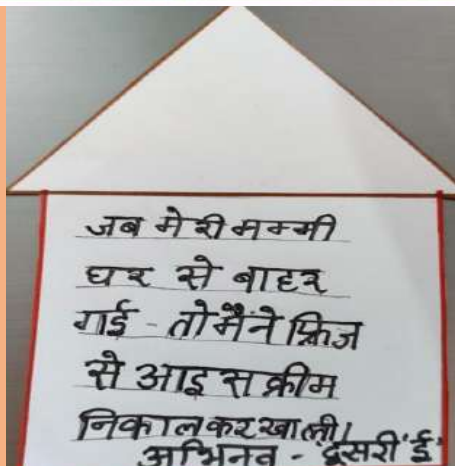 जब मेरी मम्मी
घर से बाहर
गई - तो मैंने फ्रिज
से आइसक्रीम
निकालकर खाली।
अभिनव - दूसरी 'ई'